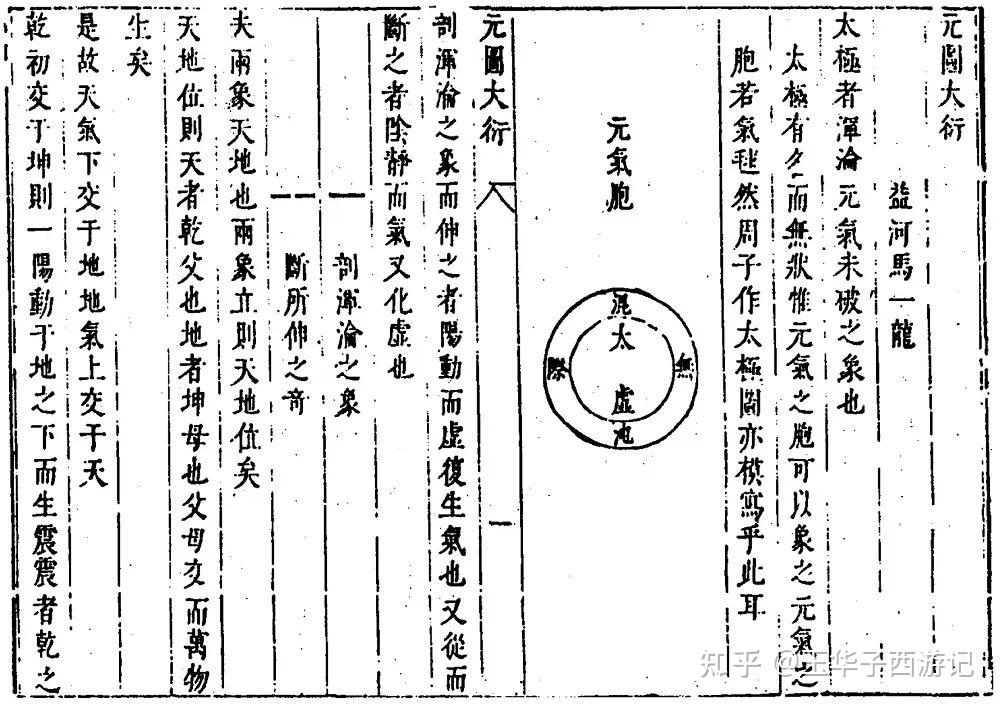 元圖大衍
益河馬一龍
太極者渾淪元氣未破之象也
太極有名而無狀惟元氣之胞可以象之元氣之
胞若氣毬然周子作太極圖亦模寫乎此耳
元氣胞
混沌
無際
太虛
元圖大衍
一
剖渾淪之象而伸之者陽動而虛復生氣也又從而
斷之者陰靜而氣又化虛也
剖渾淪之象
斷所伸之奇
夫兩象天地也兩象立則天地位矣
天地位則天者乾父也地者坤母也父母交而萬物
生矣
是故天氣下交于地地氣上交于天
乾初交于坤則一陽動于地之下而生震震者乾之
知乎 @玉华子西游记